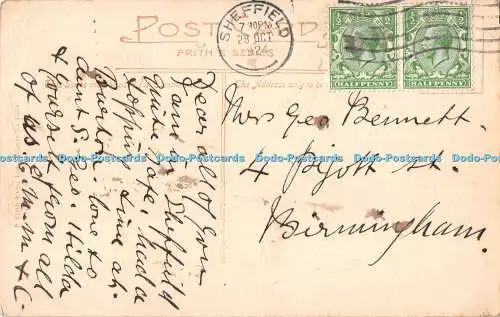 POST CARD
FRITH'S SERIES
SHEFFIELD
7 30PM
28 OCT
1924
HALFPENNY
HALFPENNY
The Address only to be
Dear all of you
am in Sheffield
quite safe. had a
topping time at
Burton. love to
Aunt S. Geo. Hilda
& yourself from all
of us. M.M & C.
Mrs Geo Bennett.
4 Pigott St.
Birmingham.
Dodo-Postcards Dodo-Postcards Dodo-Postcards Dodo-Postcards Dodo-Postcards Dodo-Postcards